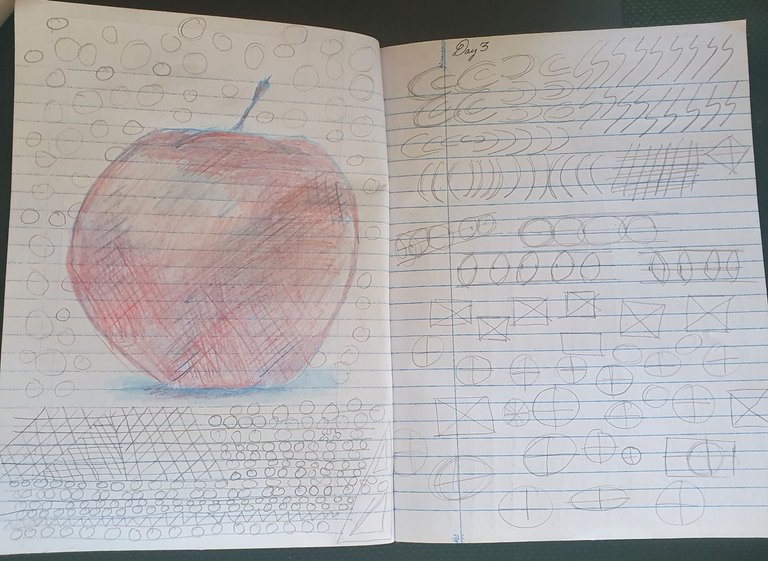 Day 3